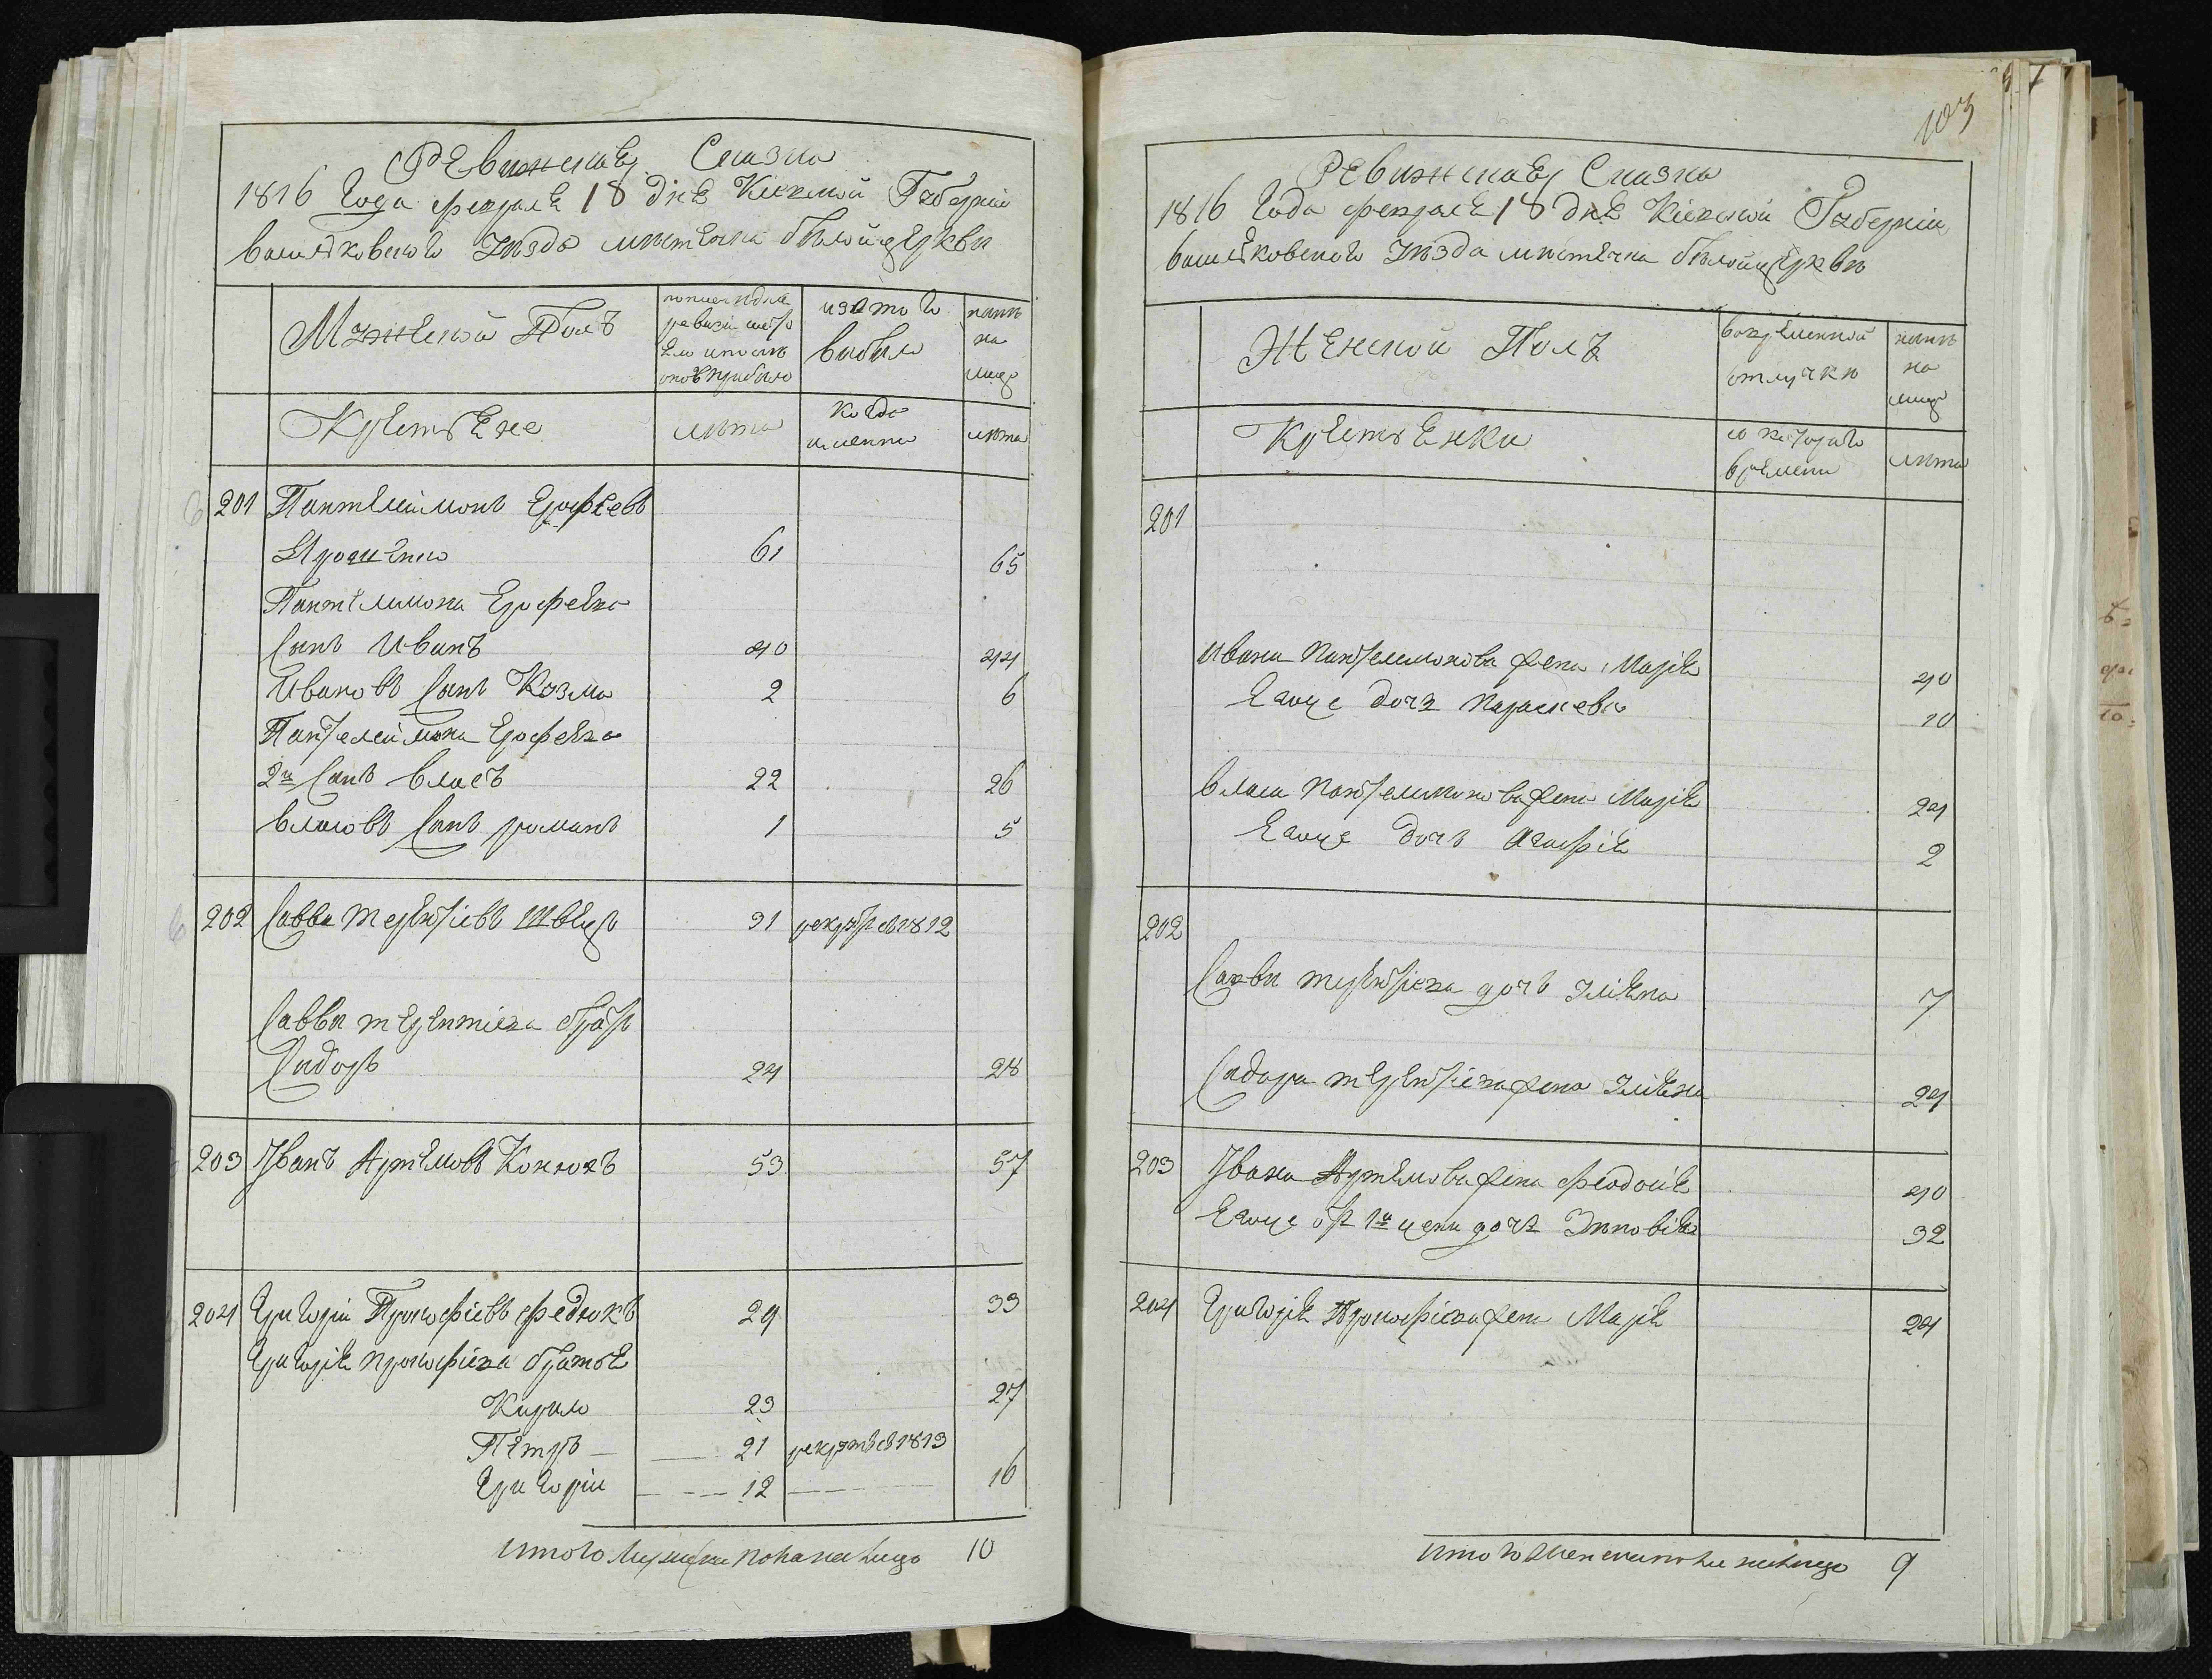 Ревижская Сказка
1816 Года февраля 18 дня Киевской Губернии
Васильковского Уезда местечка Белойцеркви
Мужеской Полъ
по последней
ревизии состо
яло и после
оной прибыло
изъ того
выбыло
ныне
на
лицо
Крестьяне
лета
когда
именно
лета
201 Пантелеймонъ Ерофеевъ
Ярошенко 61 65
Пантелимона Ерофеева
Сынъ Иванъ 40 44
Ивановъ Сынъ Козма 2 6
Пантелеймона Ерофеева
2й Сынъ Власъ 22 26
Власовъ Сынъ романъ 1 5
202 Савва Терентиевъ Швецъ 31 рекрутъ въ 1812
Саввы терентиева братъ
Сидоръ 24 28
203 Иванъ Артемовъ Конюхъ 53 57
204 Григорій Прокофіевъ Федюкъ 29 33
Григорія прокофіева братья
Кирило 23 27
Петръ 21 рекрутъ въ 1813
Григорій 12 16
итого мужеска пола на лицо 10
103
Ревижская Сказка
1816 Года февраля 18 дня Кіевской Губерніи
Васильковского Уезда местечка Белойцеркви
Женской Полъ
во временной
отлучке
ныне
на
лицо
Крестьянки
съ которого
времени
лета
201
Ивана Пантелимонова жена Марія 40
Еяоце дочь Параскева 10
Власа Пантелимонова жена Марія 24
Еяоце дочь Агафія
2
202
Саввы терентіева дочь Уліяна 7
Сидора терентіева жена Уліяна 24
203 Ивана Артемова жена Феодосія 40
Еяоце отъ 1й жены дочь Зиновія 32
204 Григорія Прокофіева жена Марія 24
итого женска пола на лицо 9